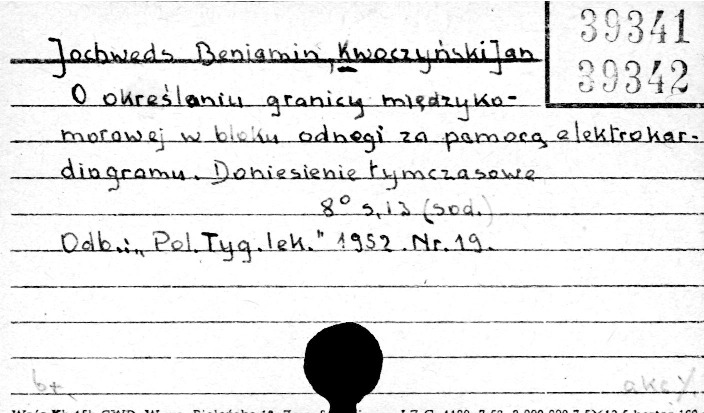 39341
39342
Jochweds Beniamin, Kwoczyński Jan
O określaniu granicy międzyko-
morowej w bloku odnogi za pomocą elektrokar-
diogramu. Doniesienie tymczasowe
8° s. 13 (sod.)
Odb.: „Pol. Tyg. lek." 1952. Nr. 19.
b+
akc